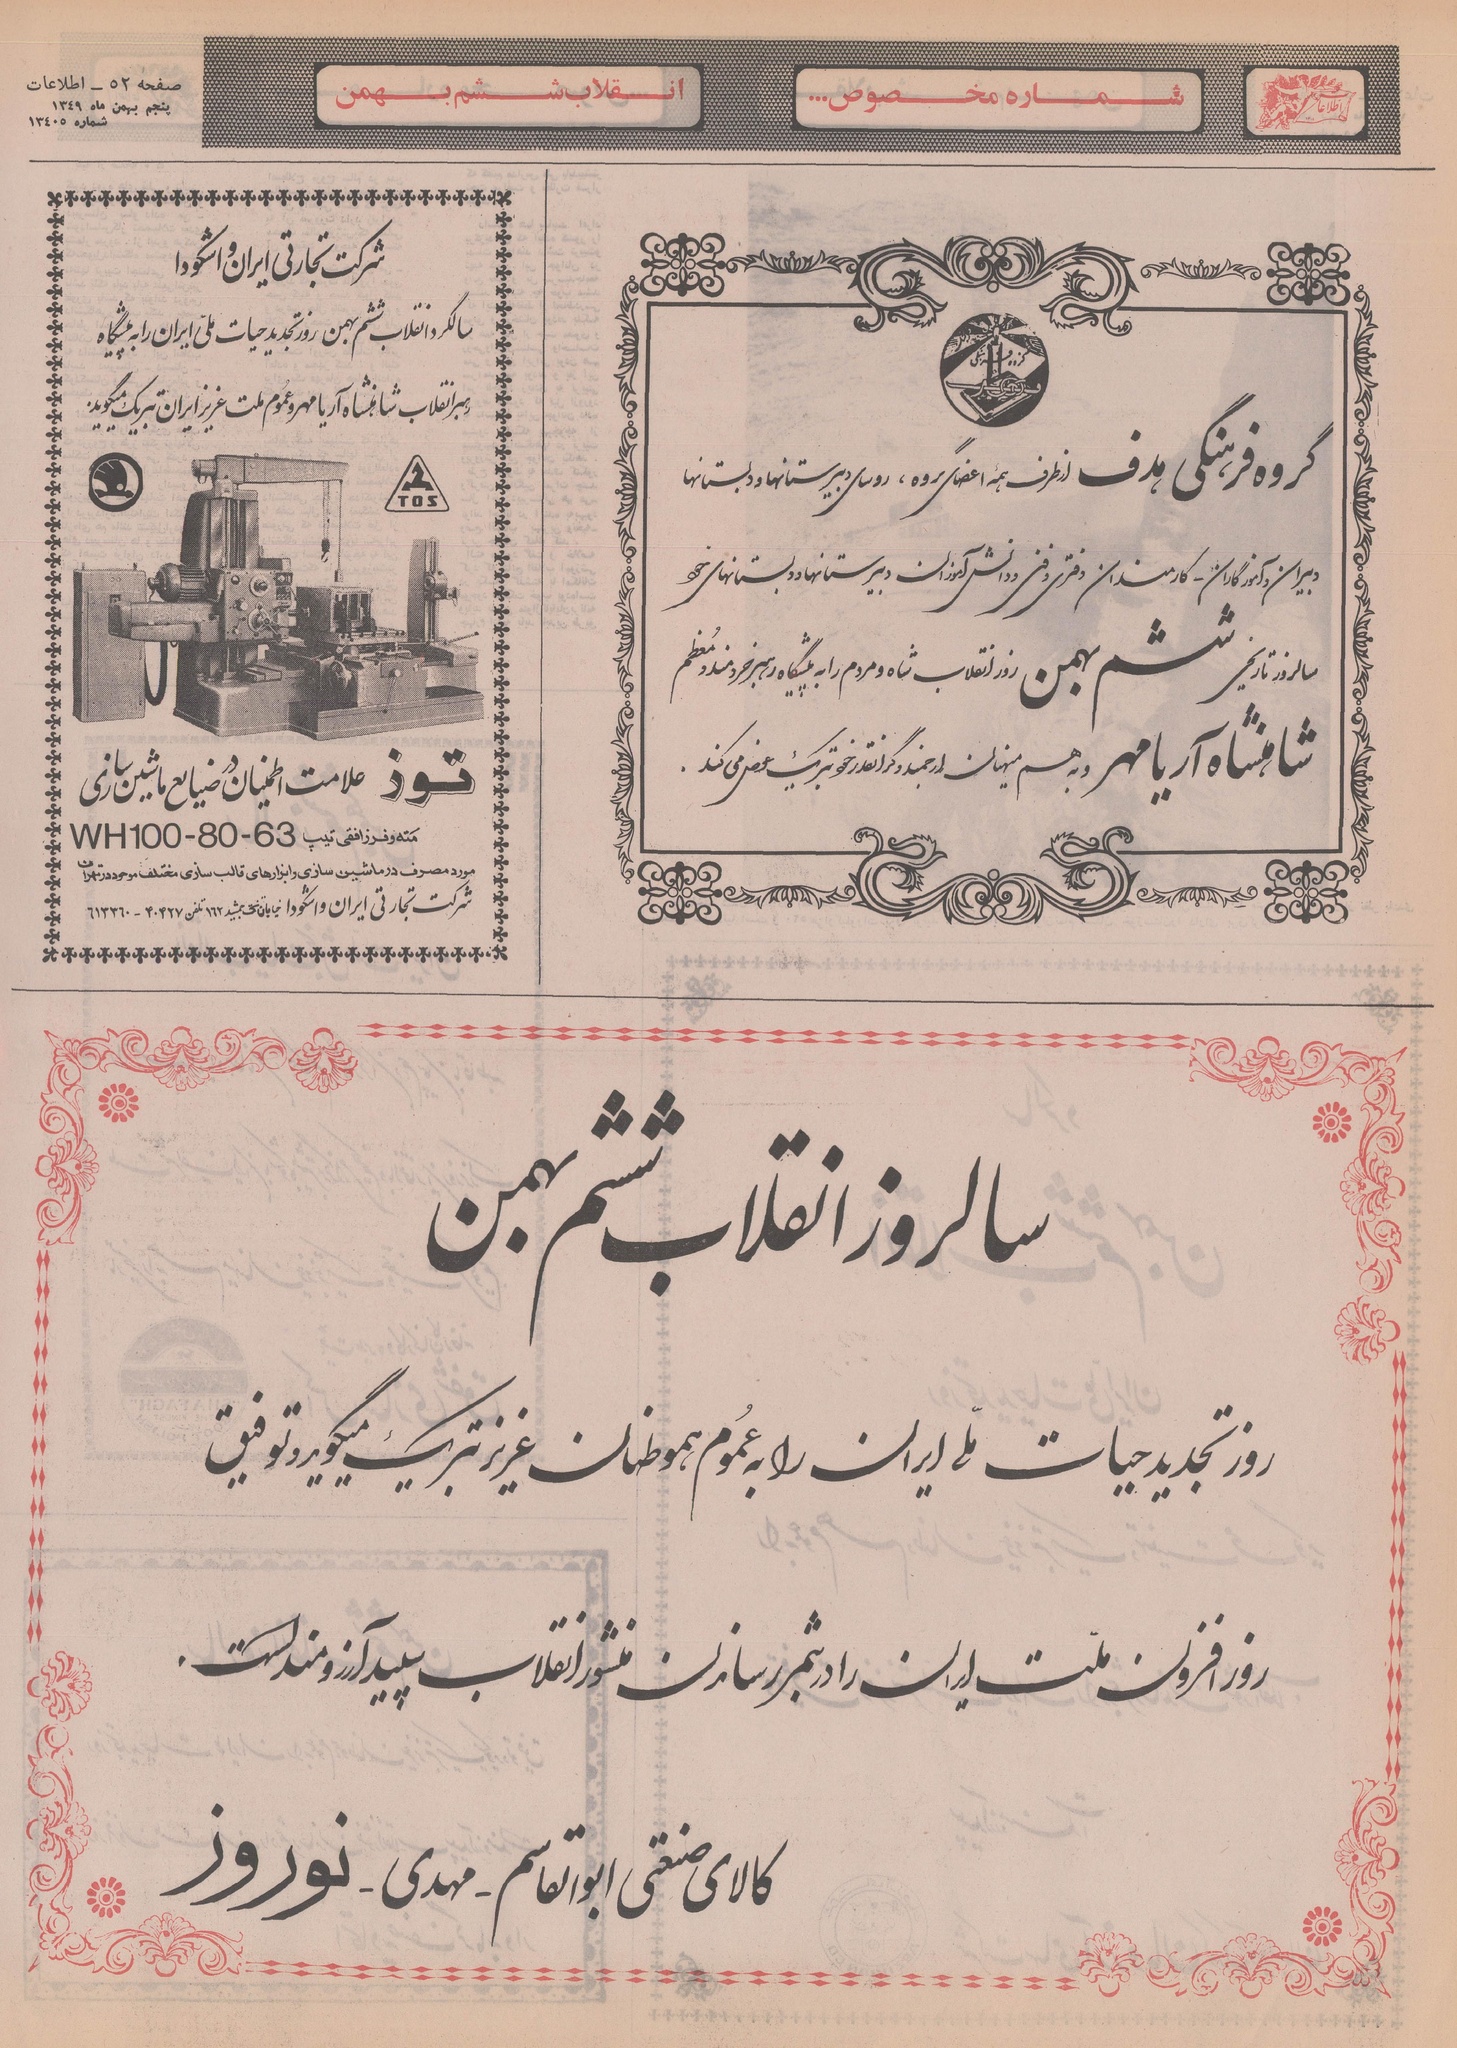 صفحه ۵۲ ـ اطلاعات
پنجم بهمن ماه ۱۳۴۹
شماره ۱۳۴۰۵
شماره مخصوص...
انقلاب ششم بهمن
اطلاعات
گروه فرهنگی هدف از طرف همه اعضای گروه ، روسای دبیرستانها و دبستانها
دبیران و آموزگاران ـ کارمندان دفتری و فنی و دانش آموزان دبیرستانها و دبستانهای خود
سالروز تاریخی ششم بهمن روز انقلاب شاه و مردم را به پیشگاه رهبر خردمند و معظم
شاهنشاه آریامهر و به هم میهنان ارجمند و گرانقدر خود تبریک عرض می کند .
شرکت تجارتی ایران و اشکودا
سالگرد انقلاب ششم بهمن روز تجدید حیات ملی ایران را به پیشگاه
رهبر انقلاب شاهنشاه آریامهر و عموم ملت عزیز ایران تبریک میگوید.
TOS
توز علامت اطمینان در صنایع ماشین سازی
مته و فرز افقی تیپ WH100-80-63
مورد مصرف در ماشین سازی و ابزارهای قالب سازی مختلف موجود در تهران
شرکت تجارتی ایران و اشکودا خیابان تخت جمشید ۱۶۲ تلفن ۴۰۴۲۷ - ۶۱۳۳۶۰
سالروز انقلاب ششم بهمن
روز تجدید حیات ملی ایران را به عموم هموطنان عزیز تبریک میگوید و توفیق
روز افزون ملت ایران را در بثمر رساندن منشور انقلاب سپید آرزومند است .
کالای صنعتی ابوالقاسم ـ مهدی ـ نوروز